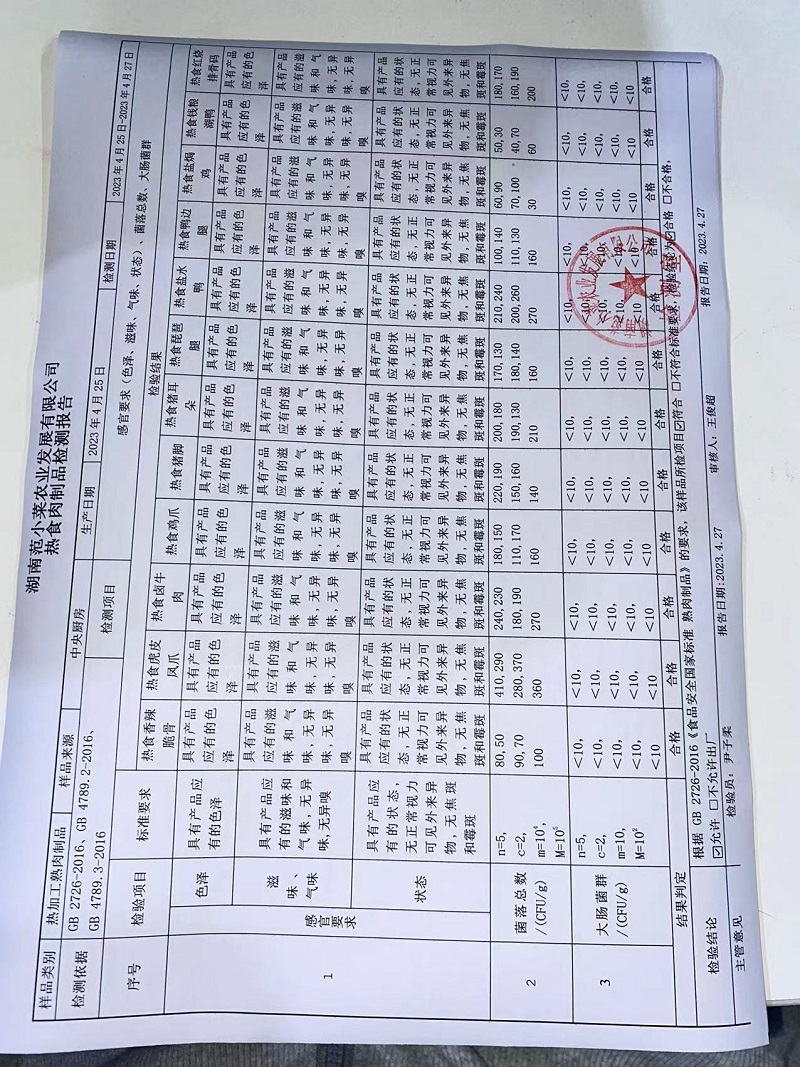 湖南范小菜农业发展有限公司
热食肉制品检测报告
样品类别 热加工熟肉制品 样品来源 中央厨房 生产日期 2023年4月25日 检测日期 2023年4月25日-2023年4月27日
检测依据 GB 2726-2016、GB 4789.2-2016、
GB 4789.3-2016 检测项目 感官要求(色泽、滋味、气味、状态)、菌落总数、大肠菌群
序号 检验项目 标准要求 检验结果
热食香辣 热食虎皮 热食卤牛 热食鸡爪 热食猪脚 热食猪耳 热食琵琶 热食盐水 热食鸭边 热食盐焗 热食钱粮 热食红烧
脆骨 凤爪 肉 朵 腿 鸭 腿 鸡 湖鸭 排骨码
1 感官要求 色泽 具有产品应 具有产品 具有产品 具有产品 具有产品 具有产品 具有产品 具有产品 具有产品 具有产品 具有产品 具有产品 具有产品
有的色泽 应有的色 应有的色 应有的色 应有的色 应有的色 应有的色 应有的色 应有的色 应有的色 应有的色 应有的色 应有的色
泽 泽 泽 泽 泽 泽 泽 泽 泽 泽 泽 泽
滋味、气味 具有产品应 具有产品 具有产品 具有产品 具有产品 具有产品 具有产品 具有产品 具有产品 具有产品 具有产品 具有产品 具有产品
有的滋味和 应有的滋 应有的滋 应有的滋 应有的滋 应有的滋 应有的滋 应有的滋 应有的滋 应有的滋 应有的滋 应有的滋 应有的滋
气味,无异 味和气 味和气 味和气 味和气 味和气 味和气 味和气 味和气 味和气 味和气 味和气 味和气
味,无异嗅 味,无异 味,无异 味,无异 味,无异 味,无异 味,无异 味,无异 味,无异 味,无异 味,无异 味,无异 味,无异
味,无异 味,无异 味,无异 味,无异 味,无异 味,无异 味,无异 味,无异 味,无异 味,无异 味,无异 味,无异
嗅 嗅 嗅 嗅 嗅 嗅 嗅 嗅 嗅 嗅 嗅 嗅
状态 具有产品应 具有产品 具有产品 具有产品 具有产品 具有产品 具有产品 具有产品 具有产品 具有产品 具有产品 具有产品 具有产品
有的状态, 应有的状 应有的状 应有的状 应有的状 应有的状 应有的状 应有的状 应有的状 应有的状 应有的状 应有的状 应有的状
无正常视力 态,无正 态,无正 态,无正 态,无正 态,无正 态,无正 态,无正 态,无正 态,无正 态,无正 态,无正 态,无正
可见外来异 常视力可 常视力可 常视力可 常视力可 常视力可 常视力可 常视力可 常视力可 常视力可 常视力可 常视力可 常视力可
物,无焦斑 见外来异 见外来异 见外来异 见外来异 见外来异 见外来异 见外来异 见外来异 见外来异 见外来异 见外来异 见外来异
和霉斑 物,无焦 物,无焦 物,无焦 物,无焦 物,无焦 物,无焦 物,无焦 物,无焦 物,无焦 物,无焦 物,无焦 物,无焦
斑和霉斑 斑和霉斑 斑和霉斑 斑和霉斑 斑和霉斑 斑和霉斑 斑和霉斑 斑和霉斑 斑和霉斑 斑和霉斑 斑和霉斑 斑和霉斑
2 菌落总数 n=5, 80,50 410,290 240,230 180,150 220,190 200,180 170,130 210,240 100,140 60,90 50,30 180,170
/(CFU/g) c=2, 90,70 280,370 180,190 110,170 150,160 190,130 180,140 200,260 110,130 70,100 40,70 160,190
m=10⁴, 100 360 270 160 140 210 160 270 160 30 60 200
M=10⁵
3 大肠菌群 n=5, <10, <10, <10, <10, <10, <10, <10, <10, <10, <10, <10, <10,
/(CFU/g) c=2, <10, <10, <10, <10, <10, <10, <10, <10, <10, <10, <10, <10,
m=10, <10, <10, <10, <10, <10, <10, <10, <10, <10, <10, <10, <10,
M=10² <10, <10, <10, <10, <10, <10, <10, <10, <10, <10, <10, <10,
<10 <10 <10 <10 <10 <10 <10 <10 <10 <10 <10 <10
结果判定 合格 合格 合格 合格 合格 合格 合格 合格 合格 合格 合格 合格
检验结论 根据 GB 2726-2016《食品安全国家标准 熟肉制品》的要求,该样品所检项目☑符合 □不符合标准要求,检验结论为☑合格 □不合格。
☑允许 □不允许出厂
主管意见 检验员:尹子柔 报告日期:2023.4.27 审核人:王俊超 报告日期:2023.4.27